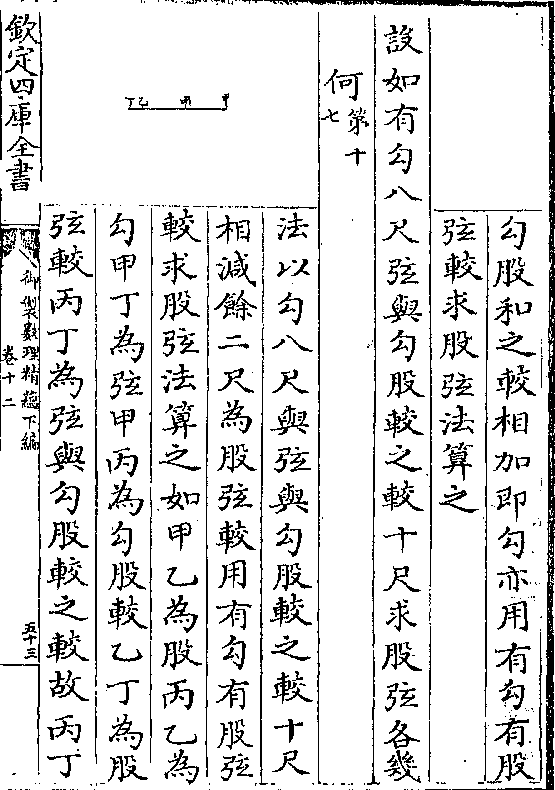 勾股和之較相加即勾亦用有勾有股
弦較求股弦法算之
設如有勾八尺弦與勾股較之較十尺求股弦各幾
何第十七
法以勾八尺與弦與勾股較之較十尺
相減餘二尺為股弦較用有勾有股弦
較求股弦法算之如甲乙為股丙乙為
勾甲丁為弦甲丙為勾股較乙丁為股
弦較丙丁為弦與勾股較之較故丙丁
丁乙 丙 甲
欽定四庫全書
御製數理精蘊下編
卷十二
五十三